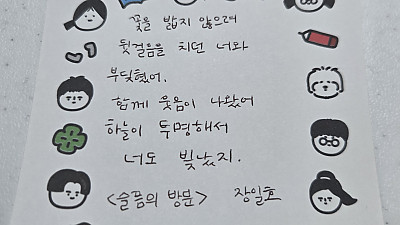 꽃을 밟지 않으려
뒷걸음을 치던 너와
부딪혔어.
함께 웃음이 나왔어
하늘이 투명해서
너도 빛났지.
<슬픔의 방문> 장일호